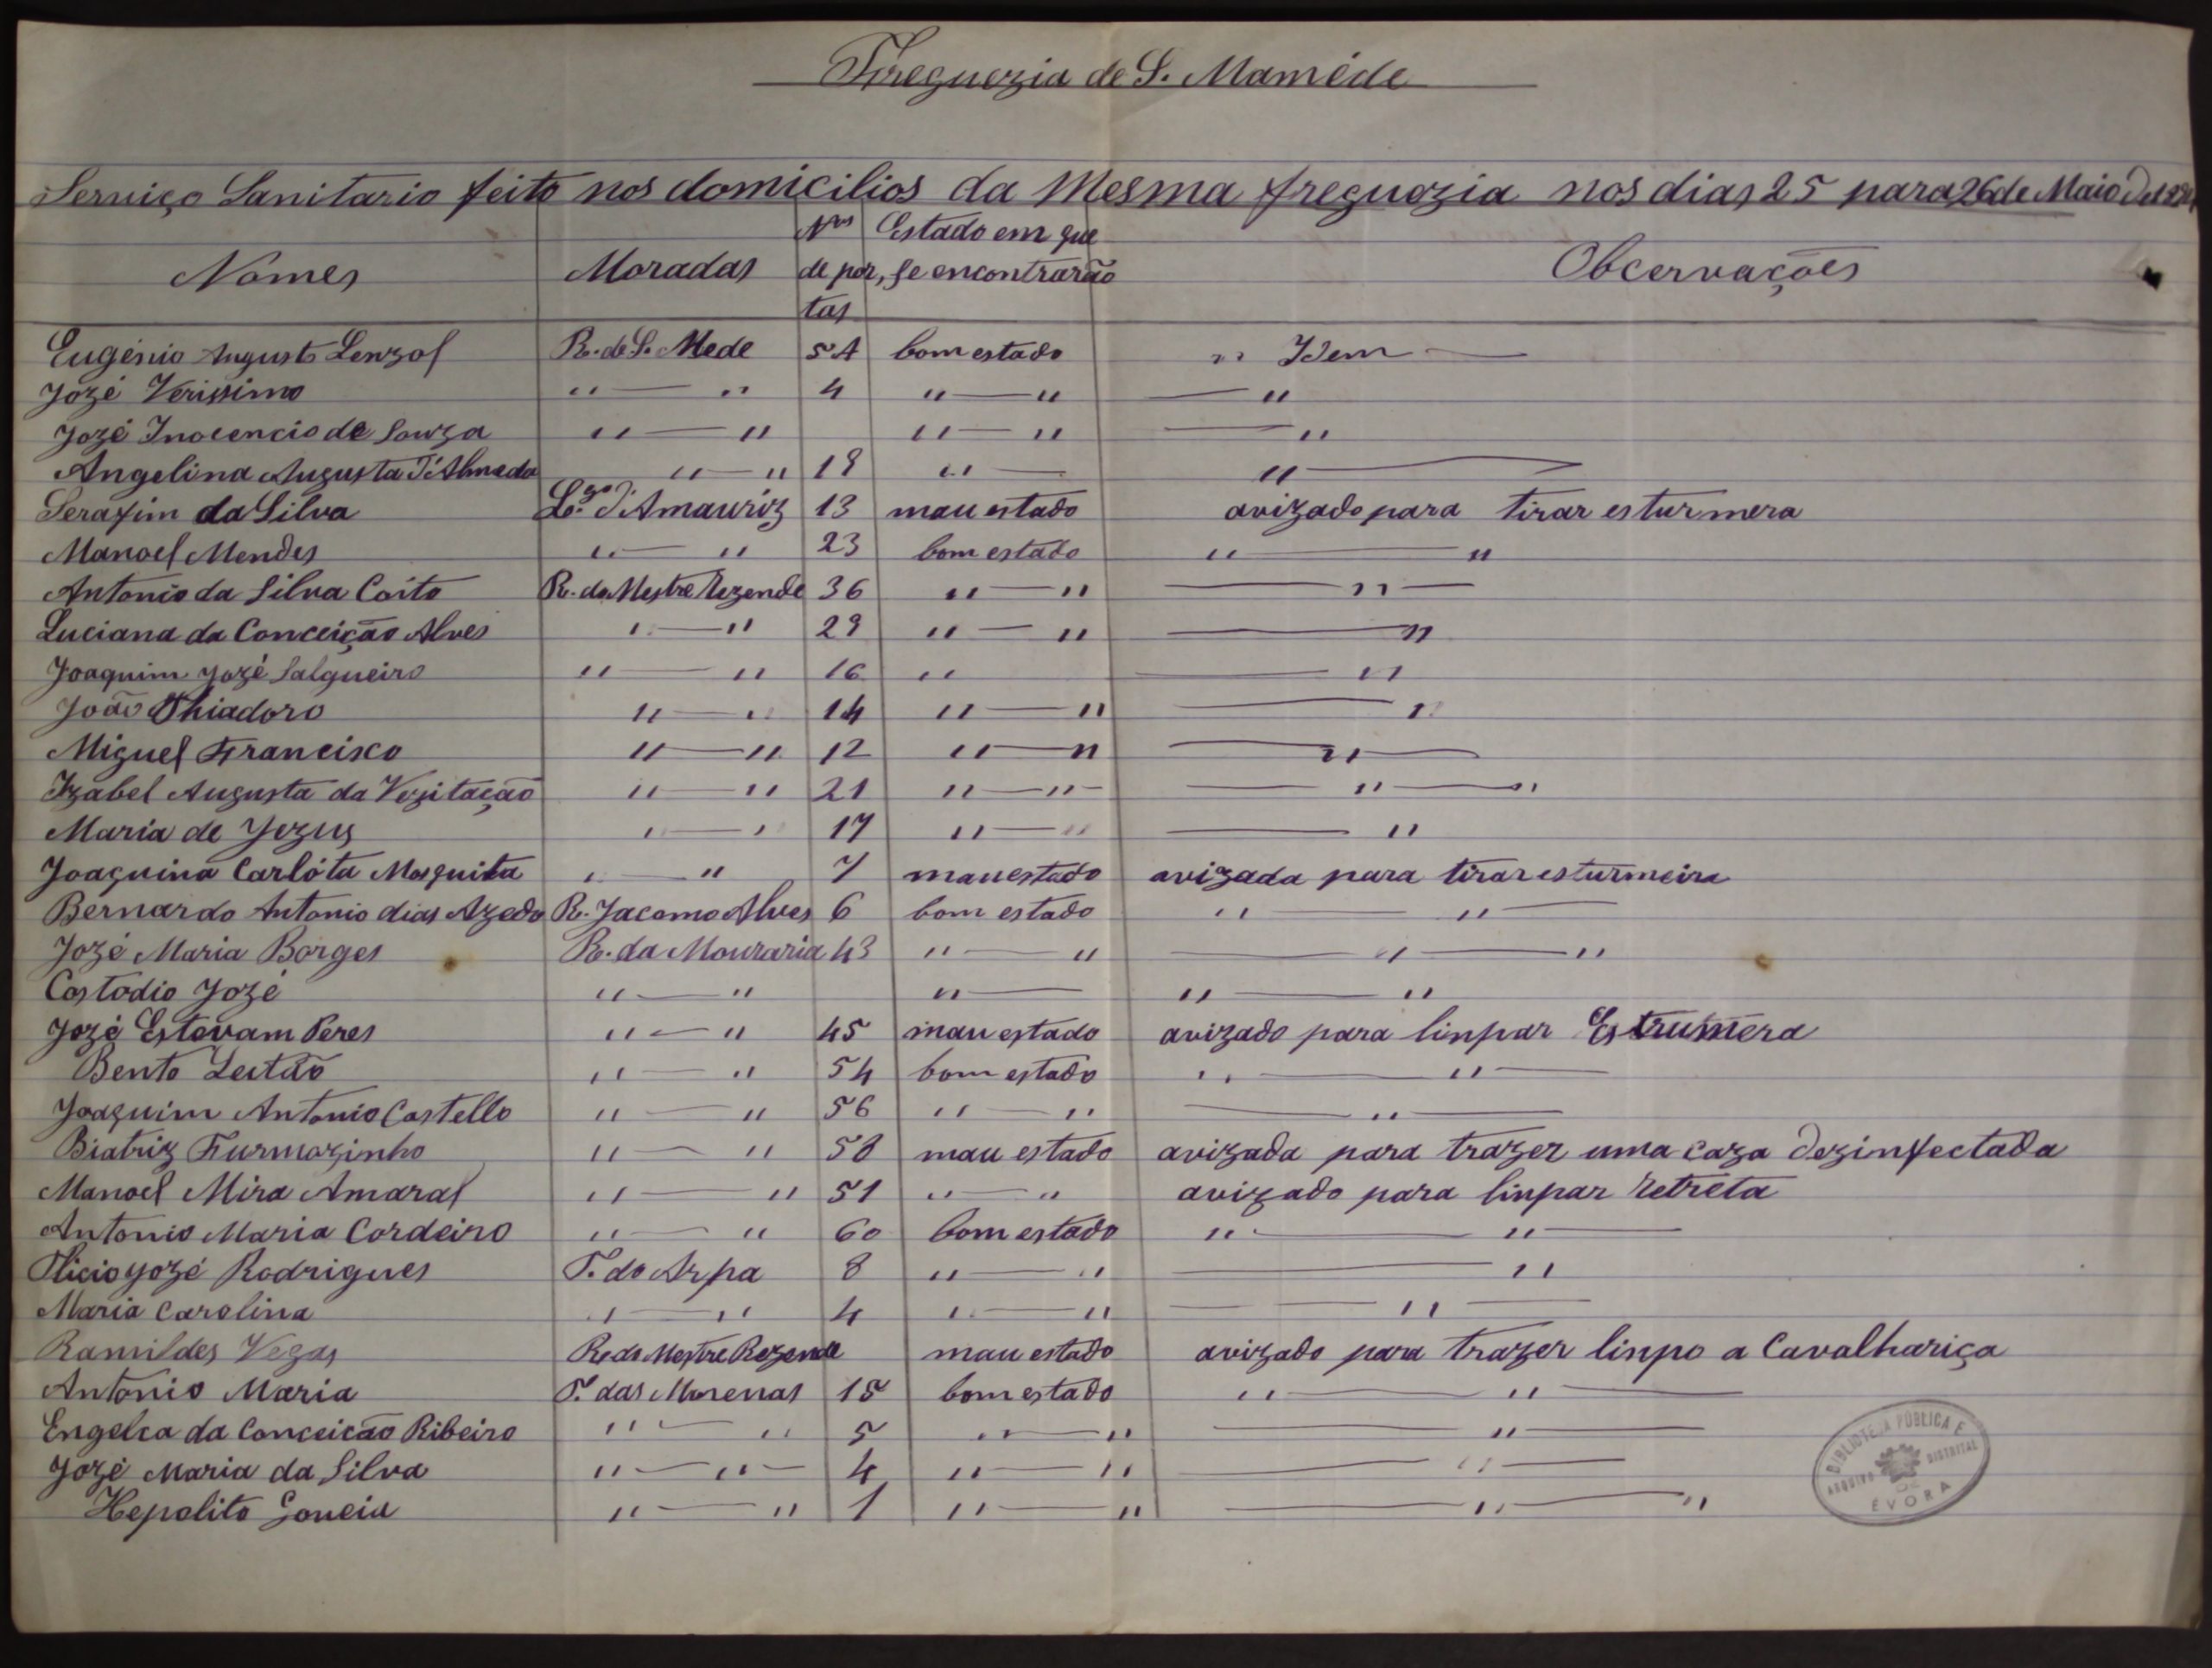 Freguezia de S. Maméde
Serviço Sanitario feito nos domicilios da Mesma freguezia nos dias 25 para 26 de Maio
Nomes Moradas Nos de por, tas Estado em que se encontrarão Obcervações
Eugénio Augusto R. de S. Mede 5A bom estado " Idem —
Jozé Verissimo " — " 4 " — " — "
Jozé Inocencio de Souza " — " " — " — "
Angelina Augusta " — " 19 " — " —
Serafim da Silva Lgo. d'Amauriz 13 mau estado avizado para tirar esturmera
Manoel Mendes " — " 23 bom estado " — "
Antonio da Silva Coito R. do Mestre Rezende 36 " — " — " —
Luciana da Conceição Alves " — " 29 " — " — "
Joaquim Jozé Salgueiro " — " 16 " — "
João Thiadoro " — " 14 " — " — "
Miguel Francisco " — " 12 " — " — " —
Izabel Augusta da Vezitação " — " 21 " — " — " — "
Maria de Jezus " — " 17 " — " — "
Joaquina Carlóta Mosquita " — " 7 mau estado avizada para tirar esturmeira
Bernardo Antonio dias Azedo R. Jacomo Alves 6 bom estado " — " —
Jozé Maria Borges R. da Mouraria 43 " — " — " — "
Costodio Jozé " — " " — " — "
Jozé Estevam Peres " — " 45 mau estado avizado para linpar Estrumera
Bento Leitão " — " 54 bom estado " — " —
Joaquim Antonio Castello " — " 56 " — " — " —
Biatriz Furmozinho " — " 58 mau estado avizada para trazer uma caza dezinfectada
Manoel Mira Amaral " — " 51 " — " avizado para linpar retreta
Antonio Maria Cordeiro " — " 60 bom estado " — " —
Jozé Rodrigues T. do Arpa 8 " — " — "
Maria Carolina " — " 4 " — " — — " —
Ramildes Vegas R. do Mestre Rezende mau estado avizado para trazer linpo a Cavalhariça
Antonio Maria T. das Morenas 15 bom estado " — " —
Engelca da Conceicão Ribeiro " — " 5 " — " — " —
Jozé Maria da Silva " — " — 4 " — " — " —
Hepolito Gouveia " — " 1 " — " — " — "
BIBLIOTECA PÚBLICA E
ARQUIVO DISTRITAL
DE
ÉVORA